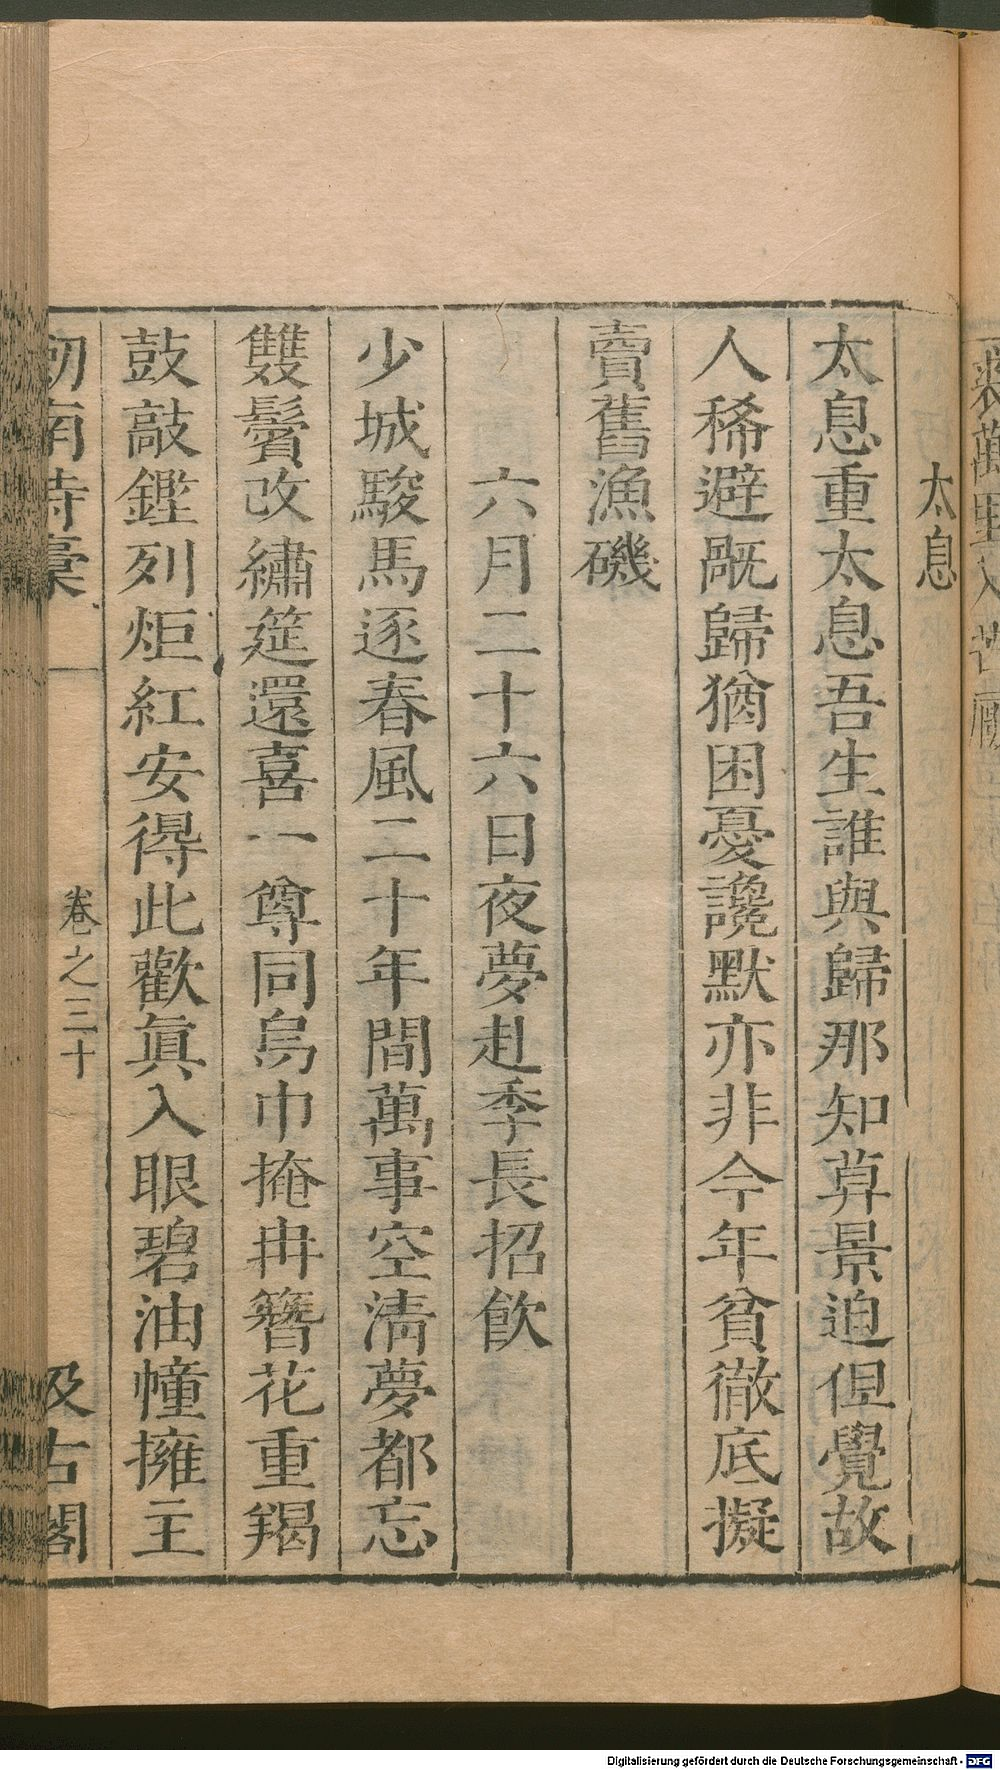 太息
太息重太息吾生誰與歸那知暮景迫但覺故
人稀避謗歸猶困憂讒默亦非今年貧徹底擬
賣舊漁磯
六月二十六日夜夢赴季長招飲
少城駿馬逐春風二十年間萬事空淸夢都忘
雙鬢改繡筵還喜一尊同烏巾掩冉簪花重羯
鼓敲鏗列炬紅安得此歡眞入眼碧油幢擁主
劒南詩稾
卷之三十
汲古閣
Digitalisierung gefördert durch die Deutsche Forschungsgemeinschaft - DFG